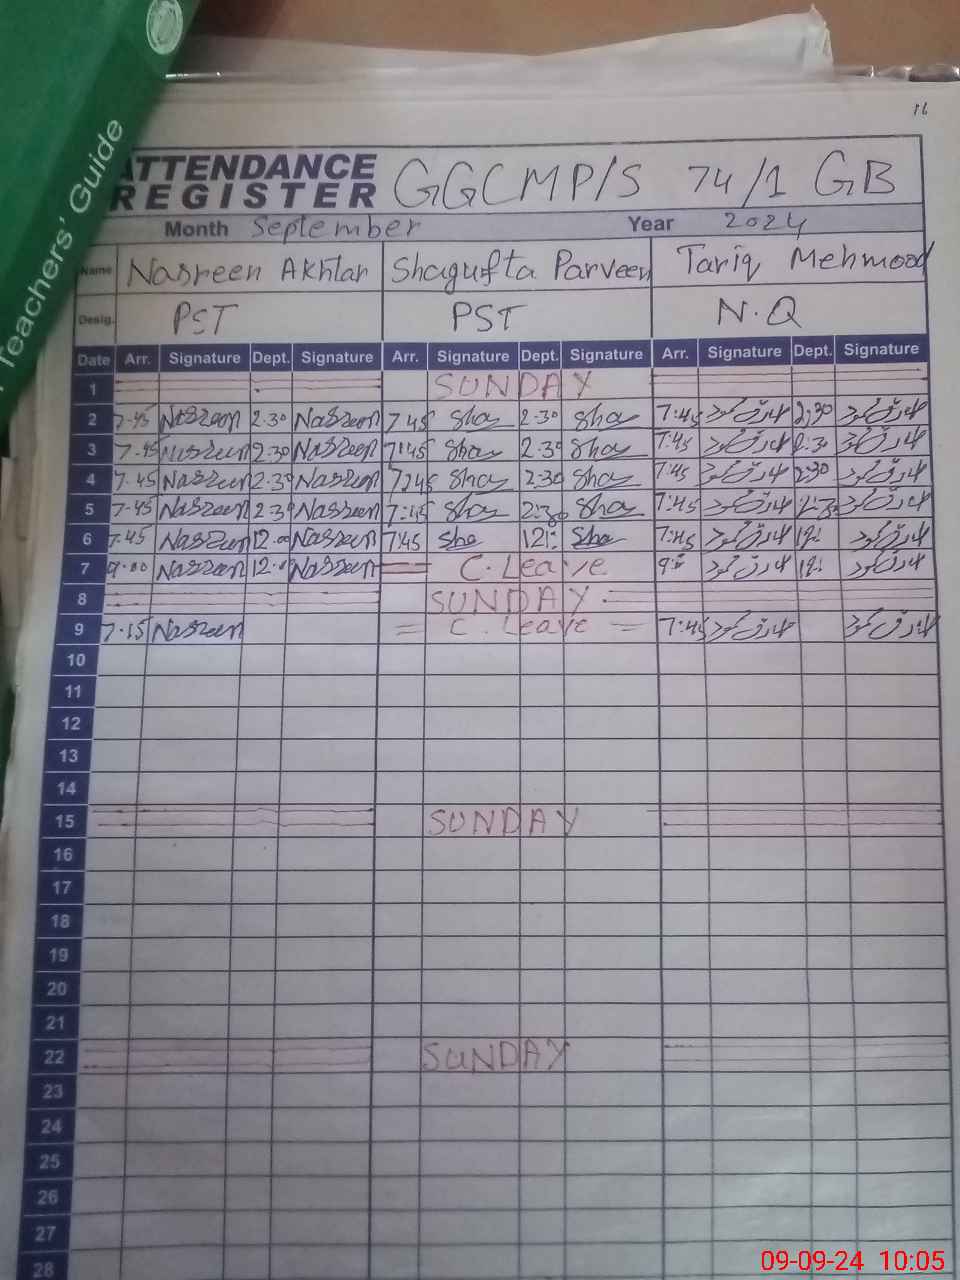 Teachers' Guide
16
ATTENDANCE REGISTER GGCMP/S 74/1 GB
Month September Year 2024
Name Nasreen Akhtar Shagufta Parveen Tariq Mehmood
Desig. PST PST N.Q
Date Arr. Signature Dept. Signature Arr. Signature Dept. Signature Arr. Signature Dept. Signature
1 SUNDAY
2 7-45 Nasreen 2.30 Nasreen 7 45 Sha 2-30 Sha 7:45 طارق محمود 2:30 طارق محمود
3 7-45 Nasreen 2.30 Nasreen 7:45 Sha 2.30 Sha 7:45 طارق محمود 2:30 طارق محمود
4 7.45 Nasreen 2.30 Nasreen 7:45 Sha 2:30 Sha 7:45 طارق محمود 2:30 طارق محمود
5 7-45 Nasreen 2.30 Nasreen 7:45 Sha 2:30 Sha 7:45 طارق محمود 2:30 طارق محمود
6 7.45 Nasreen 12.00 Nasreen 7:45 Sha 12: Sha 7:45 طارق محمود 12: طارق محمود
7 9.00 Nasreen 12.00 Nasreen C. Leave 9: طارق محمود 12: طارق محمود
8 SUNDAY
9 7.15 Nasreen C. Leave 7:45 طارق محمود طارق محمود
10
11
12
13
14
15 SUNDAY
16
17
18
19
20
21
22 SUNDAY
23
24
25
26
27
28
09-09-24 10:05